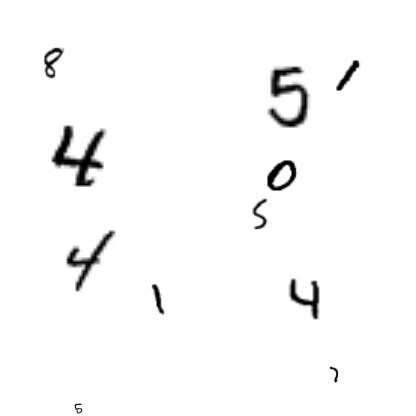 8
5 1
4
0
5
4
1 4
7
5